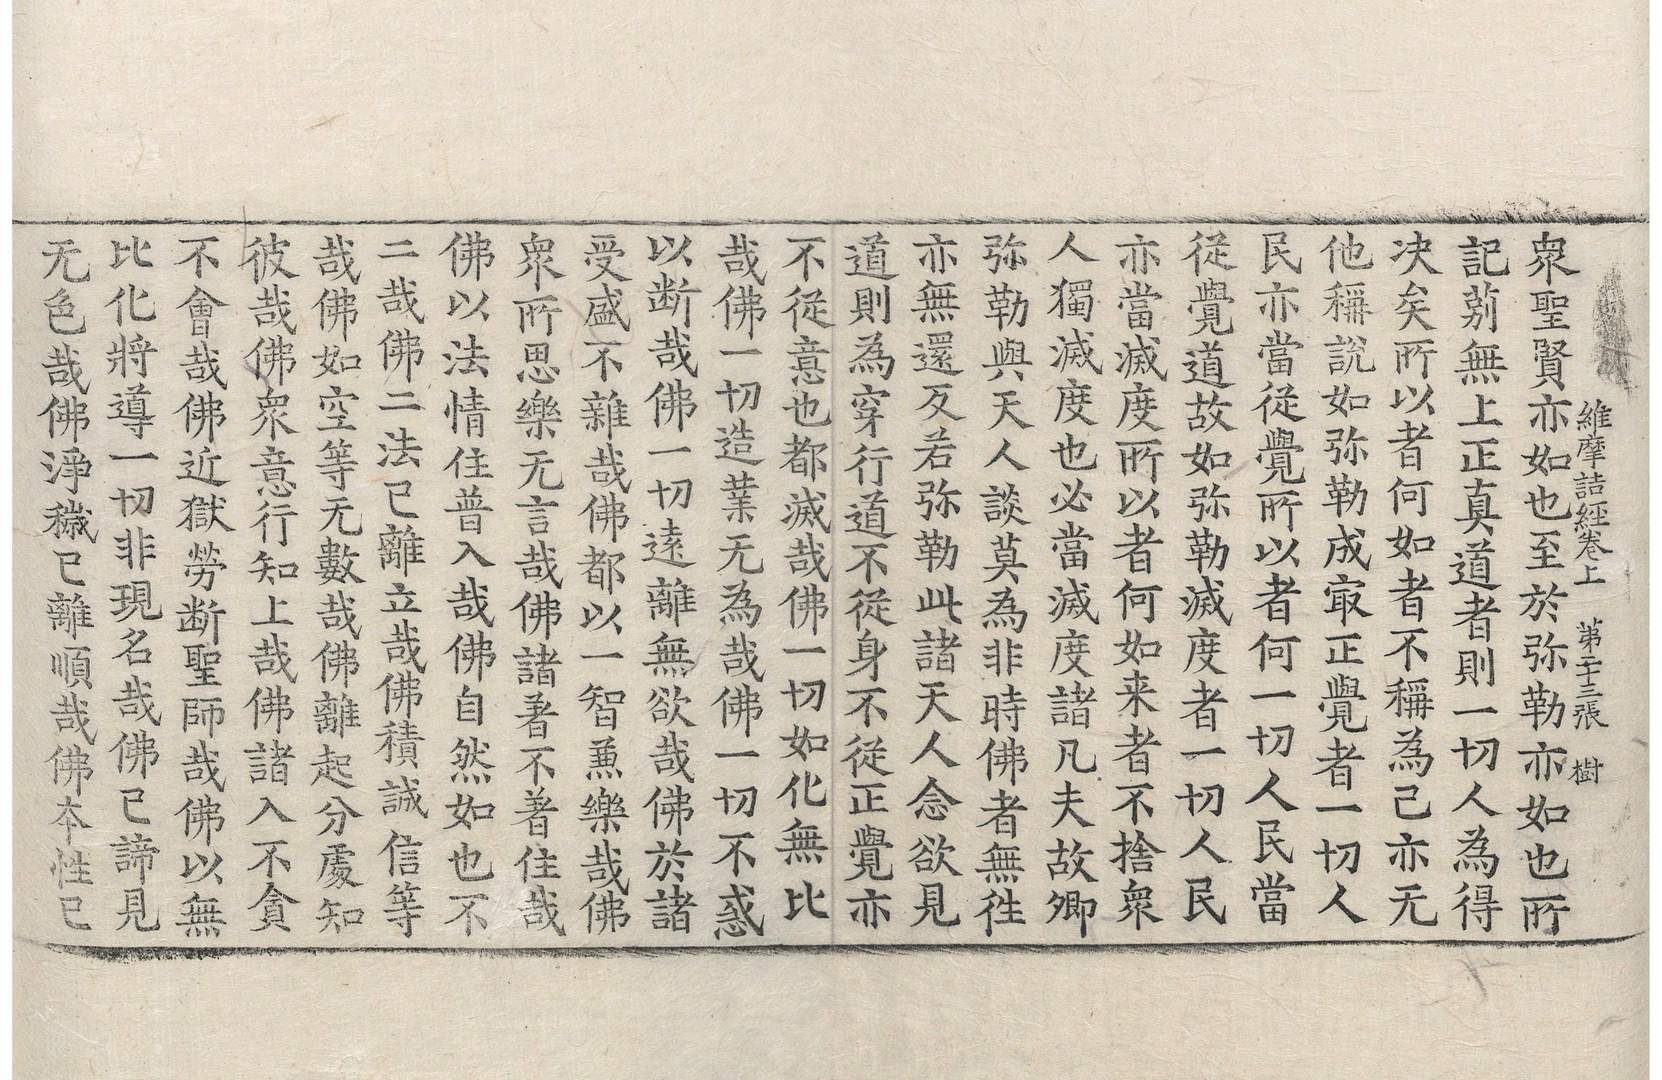 維摩詰經卷上 第二十三張 樹
衆聖賢亦如也至於弥勒亦如也所
記莂無上正真道者則一切人為得
决矣所以者何如者不稱為己亦无
他稱說如弥勒成㝡正覺者一切人
民亦當從覺所以者何一切人民當
從覺道故如弥勒滅度者一切人民
亦當滅度所以者何如来者不捨衆
人獨滅度也必當滅度諸凡夫故卿
弥勒與天人談莫為非時佛者無徃
亦無還反若弥勒此諸天人念欲見
道則為穿行道不從身不從正覺亦
不從意也都滅哉佛一切如化無比
哉佛一切造業无為哉佛一切不惑
以断哉佛一切遠離無欲哉佛於諸
受盛不雜哉佛都以一智兼樂哉佛
衆所思樂无言哉佛諸著不著住哉
佛以法情住普入哉佛自然如也不
二哉佛二法已離立哉佛積誠信等
哉佛如空等无數哉佛離起分處知
彼哉佛衆意行知上哉佛諸入不貪
不會哉佛近獄勞断聖師哉佛以無
比化將導一切非現名哉佛已諦見
无色哉佛淨穢已離順哉佛本性已